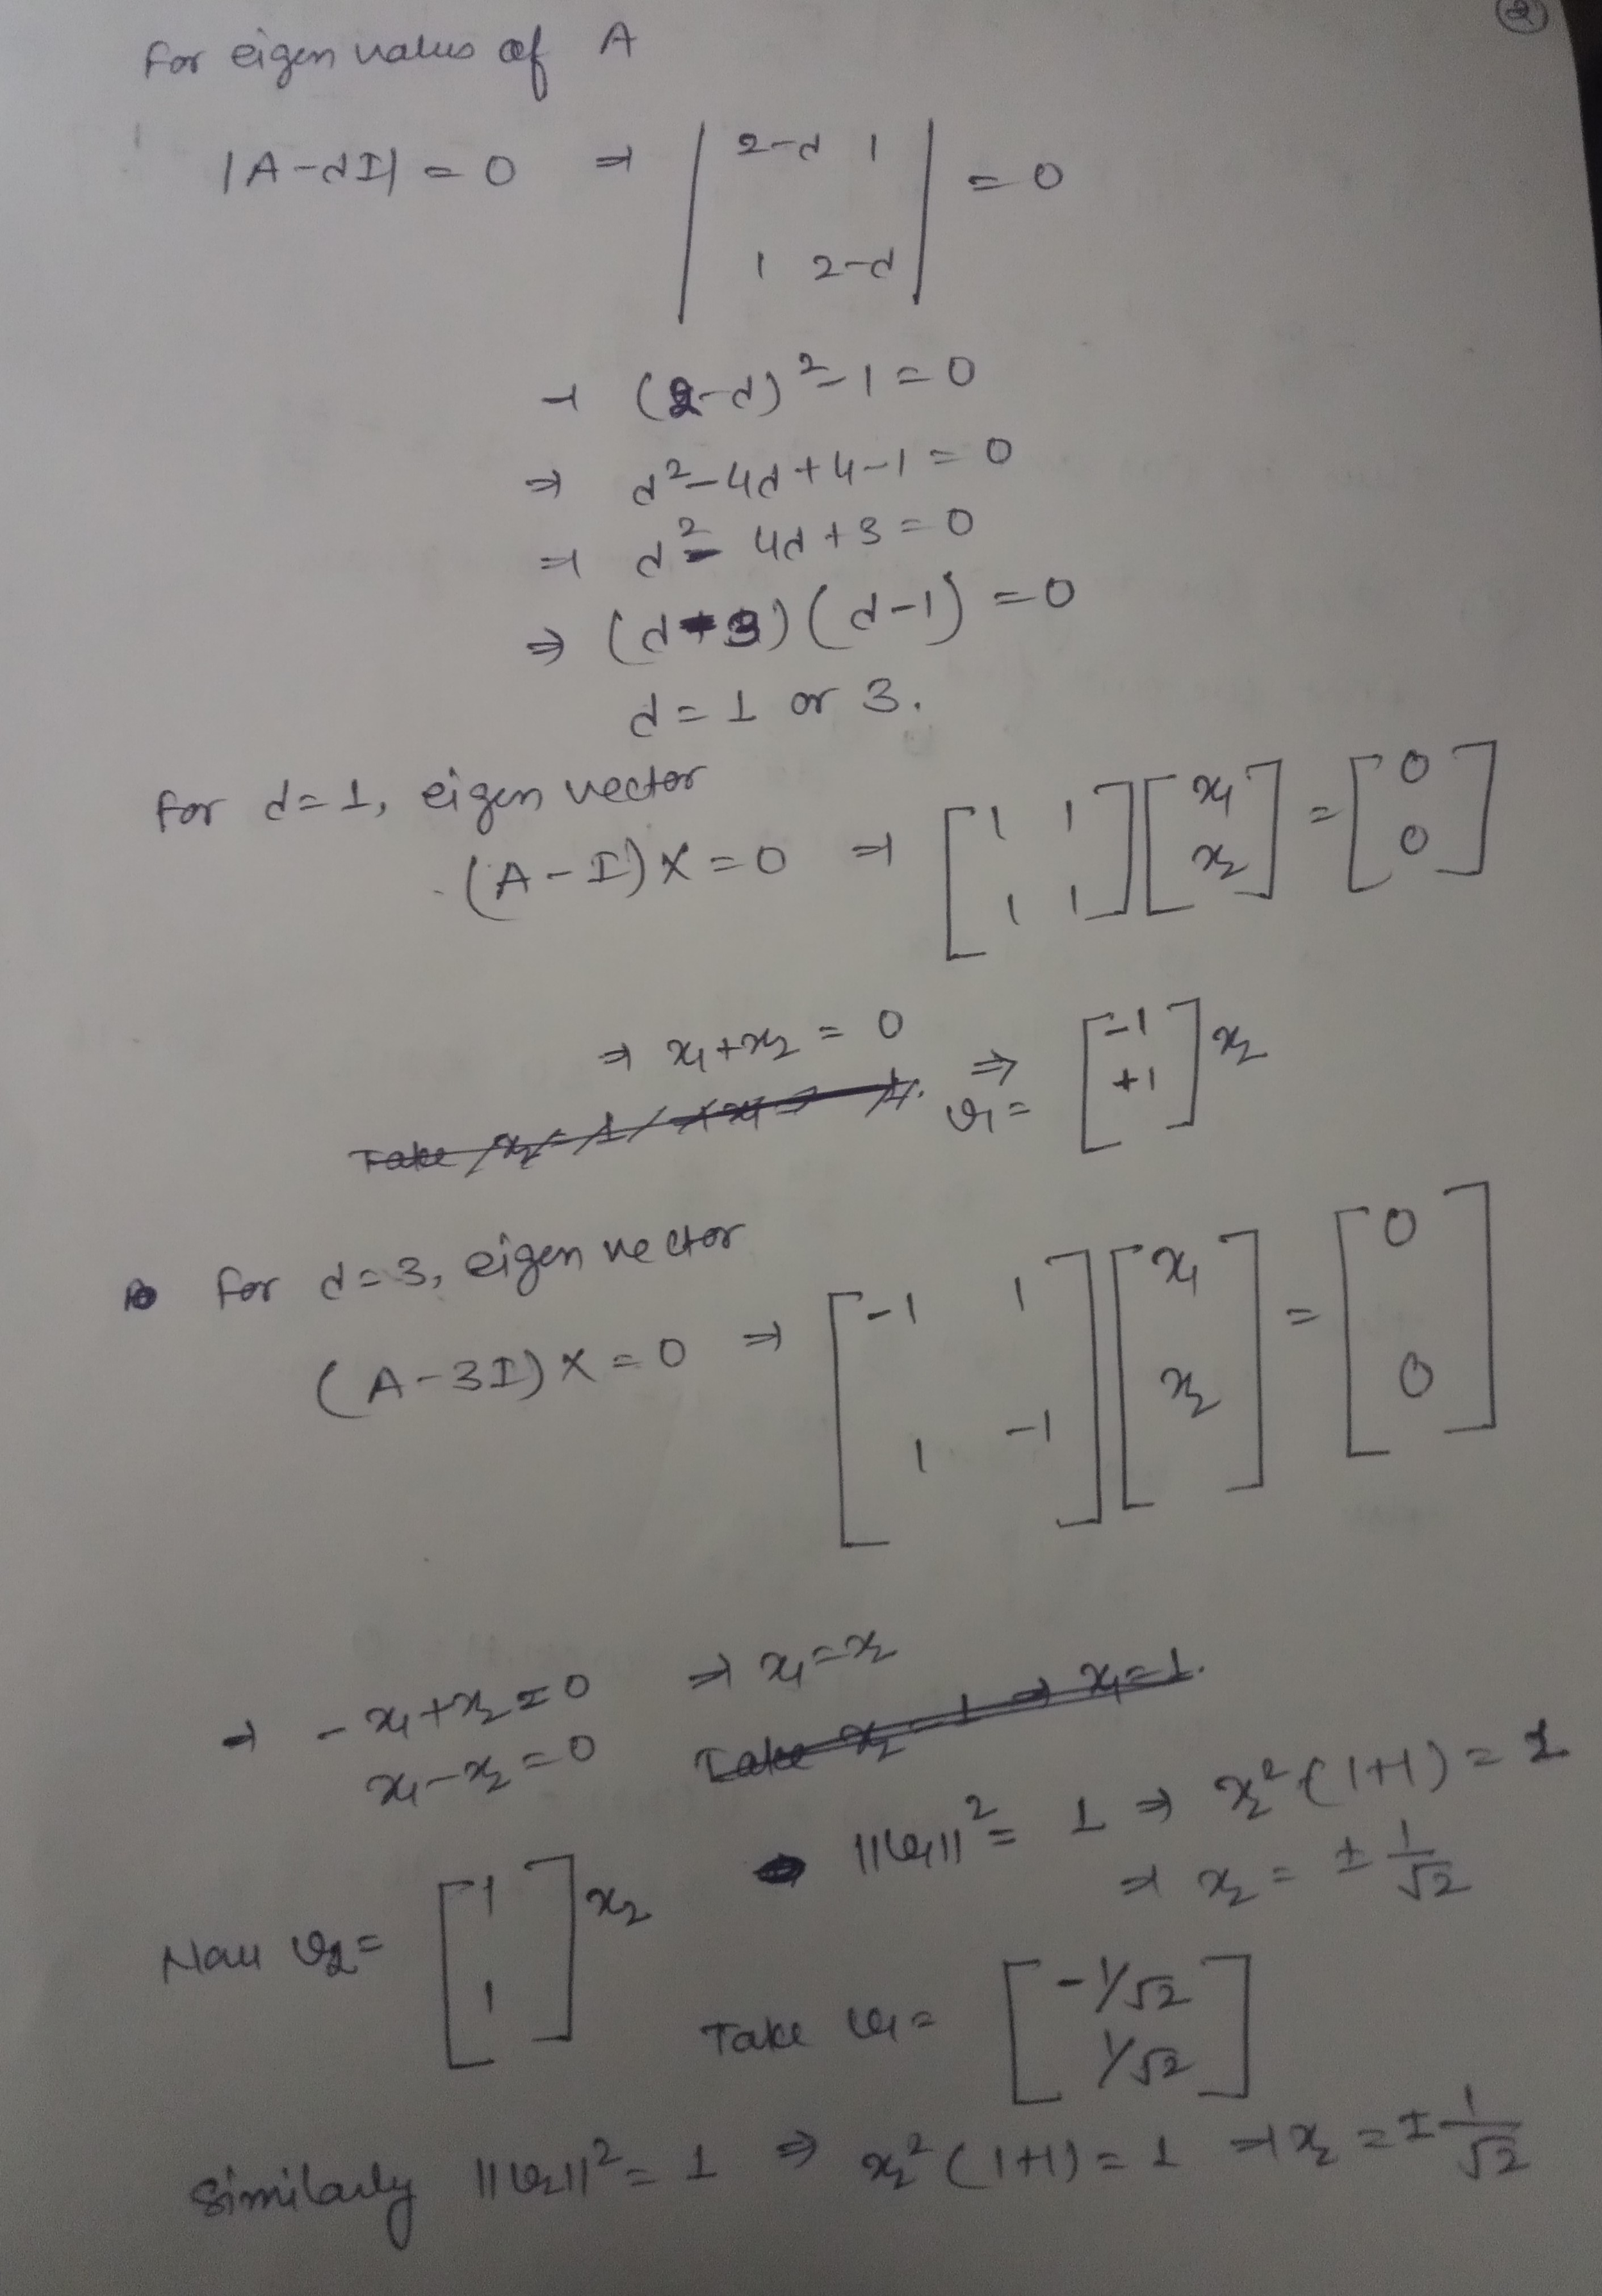 ②
For eigen values of A
|A-dI| = 0 ⇒ | 2-d 1 | = 0
| 1 2-d |
⇒ (2-d)² - 1 = 0
⇒ d² - 4d + 4 - 1 = 0
⇒ d² - 4d + 3 = 0
⇒ (d-3)(d-1) = 0
d = 1 or 3.
For d = 1, eigen vector
(A-I)X = 0 ⇒ [1 1; 1 1] [x₁; x₂] = [0; 0]
⇒ x₁ + x₂ = 0 ⇒ v₁ = [-1; +1] x₂
For d = 3, eigen vector
(A-3I)X = 0 ⇒ [-1 1; 1 -1] [x₁; x₂] = [0; 0]
⇒ -x₁ + x₂ = 0 ⇒ x₁ = x₂
x₁ - x₂ = 0 Take x₂ = 1 ⇒ x₁ = 1.
||v₁||² = 1 ⇒ x₂² (1+1) = 1
⇒ x₂ = ± 1/√2
Now v₂ = [1; 1] x₂
Take v₁ = [-1/√2; 1/√2]
Similarly ||v₂||² = 1 ⇒ x₂² (1+1) = 1 ⇒ x₂ = ± 1/√2